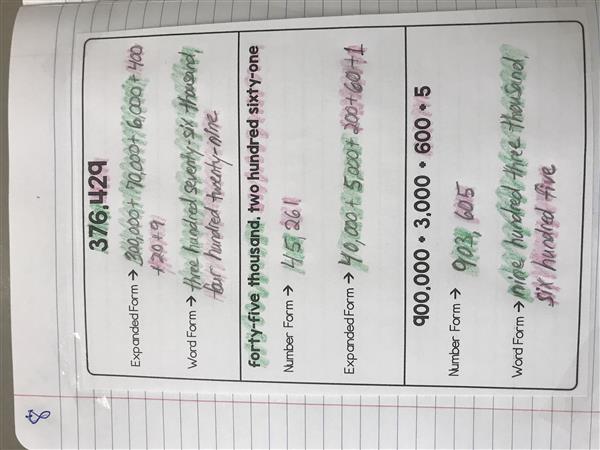 8
376,429
Expanded Form → 300,000 + 70,000 + 6,000 + 400
+ 20 + 9
Word Form → three hundred seventy-six thousand
four hundred twenty-nine
forty-five thousand, two hundred sixty-one
Number Form → 45,261
Expanded Form → 40,000 + 5,000 + 200 + 60 + 1
900,000 + 3,000 + 600 + 5
Number Form → 903,605
Word Form → nine hundred three thousand
six hundred five